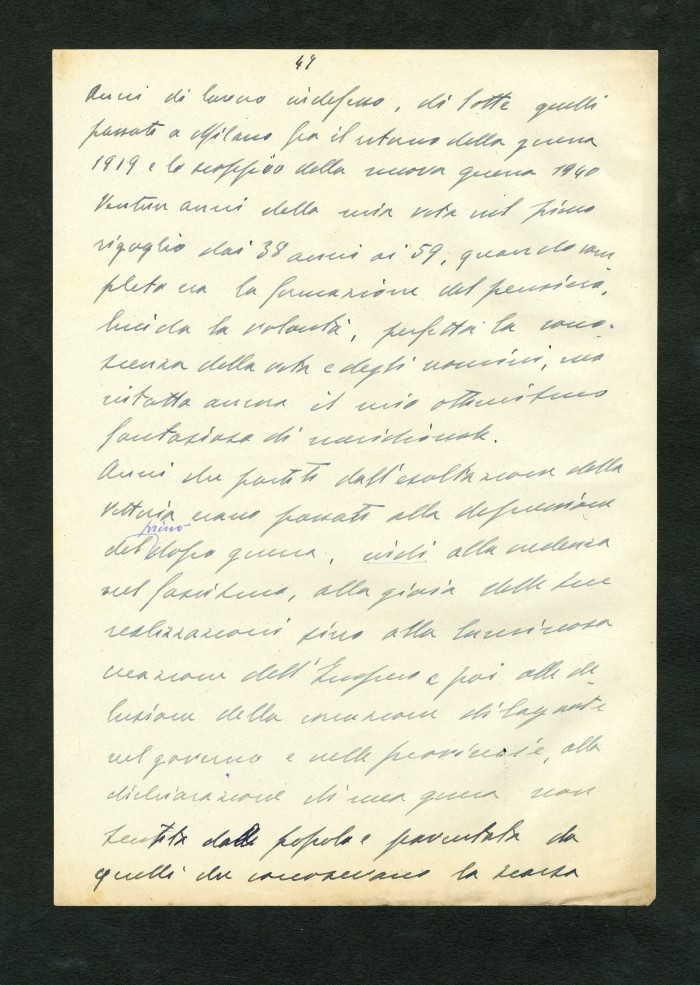 47
Anni di lavoro indefesso, di lotte quelli
passati a Milano fra il ritorno della guerra
1919 e lo scoppio della nuova guerra 1940
Ventun anni della mia vita nel pieno
rigoglio dai 38 anni ai 59, quando com
pleta era la formazione del pensiero,
lucida la volontà, perfetta la cono-
scenza della vita e degli uomini, ma
intatto ancora il mio ottimismo
fantasioso di meridionale.
Anni che partiti dall'esaltazione della
Vittoria erano passati alla depressione
primo
del dopo guerra, indi alla credenza
nel fascismo, alla gioia delle sue
realizzazioni sino alla luminosa
creazione dell'Impero e poi alla de
lusione della corruzione dilagante
nel governo e nelle provincie, alla
dichiarazione di una guerra non
sentita dal popolo e paventata da
quelli che conoscevano la scarsa